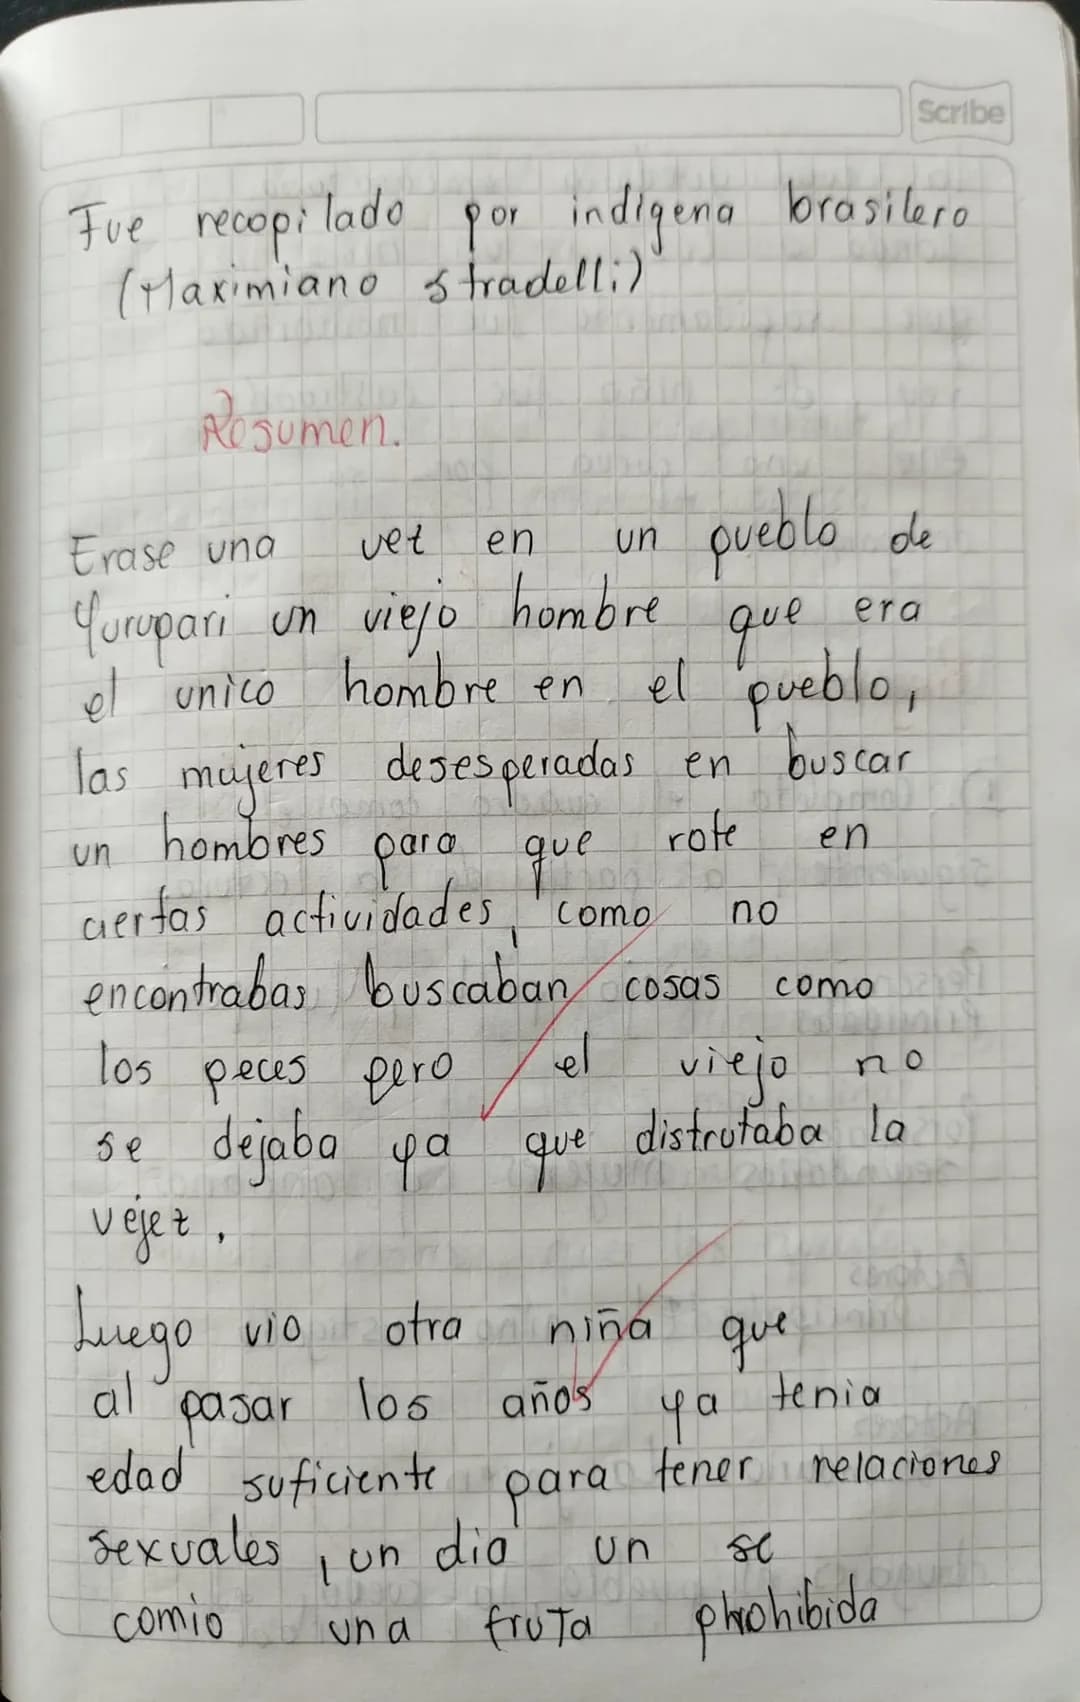 Scribe
Fue recopilado por indigena brasilero
(Maximiano stradelli)
Resumen.
Erase una vez en un pueblo de
Yurupari un viejo hombre que era
el unico hombre en el pueblo,
las mujeres desesperadas en buscar
un hombres para que rote en
ciertas actividades, como no
encontrabas buscaban cosas como
los peces pero el viejo no
se dejaba ya que disfrutaba la
vejez.
Luego vio otra niña que
al pasar los años ya tenia
edad suficiente para tener relaciones
sexuales, un dia un se
comio una fruta prohibida